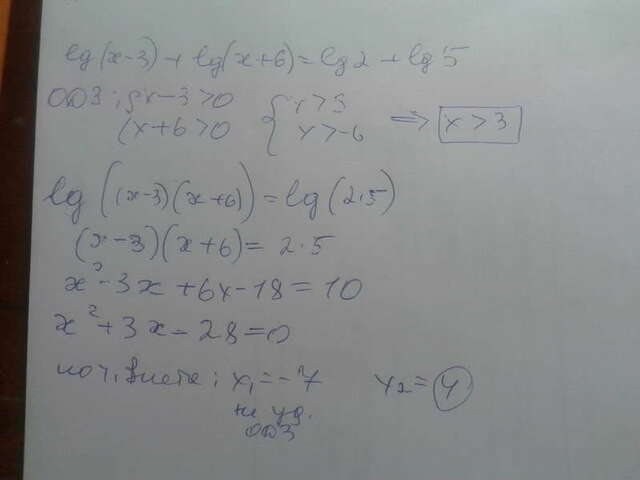 lg(x-3) + lg(x+6) = lg2 + lg5
ОДЗ: {x-3>0 {x>3
{x+6>0 x>-6 => x>3
lg((x-3)(x+6)) = lg(2·5)
(x-3)(x+6) = 2·5
x²-3x+6x-18=10
x²+3x-28=0
по т. Виета: x₁=-7 x₂=4
не уд.
ОДЗ